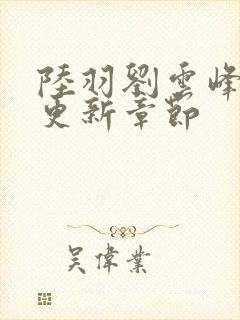 陸羽劉雲峰
更新章節
吳偉業